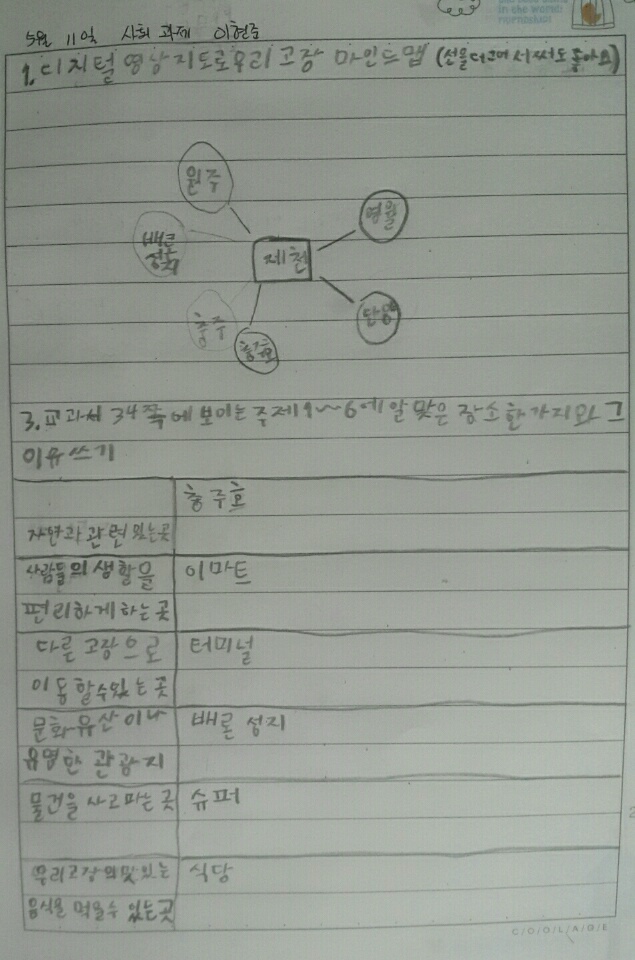 5월 11일 사회 과제 이현준
1. 디지털 영상지도로 우리 고장 마인드맵 (선을 더 그어서 써도 좋아요)
원주
영월
배론
성지
제천
충주
단양
충주호
3. 교과서 34쪽에 보이는 주제 1~6에 알맞은 장소 한 가지와 그
이유 쓰기
충주호
자연과 관련 있는 곳
사람들의 생활을 이마트
편리하게 하는 곳
다른 고장으로 터미널
이동할 수 있는 곳
문화유산이나 배론 성지
유명한 관광지
물건을 사고 파는 곳 슈퍼
우리 고장의 맛있는 식당
음식을 먹을 수 있는 곳
COOLADE